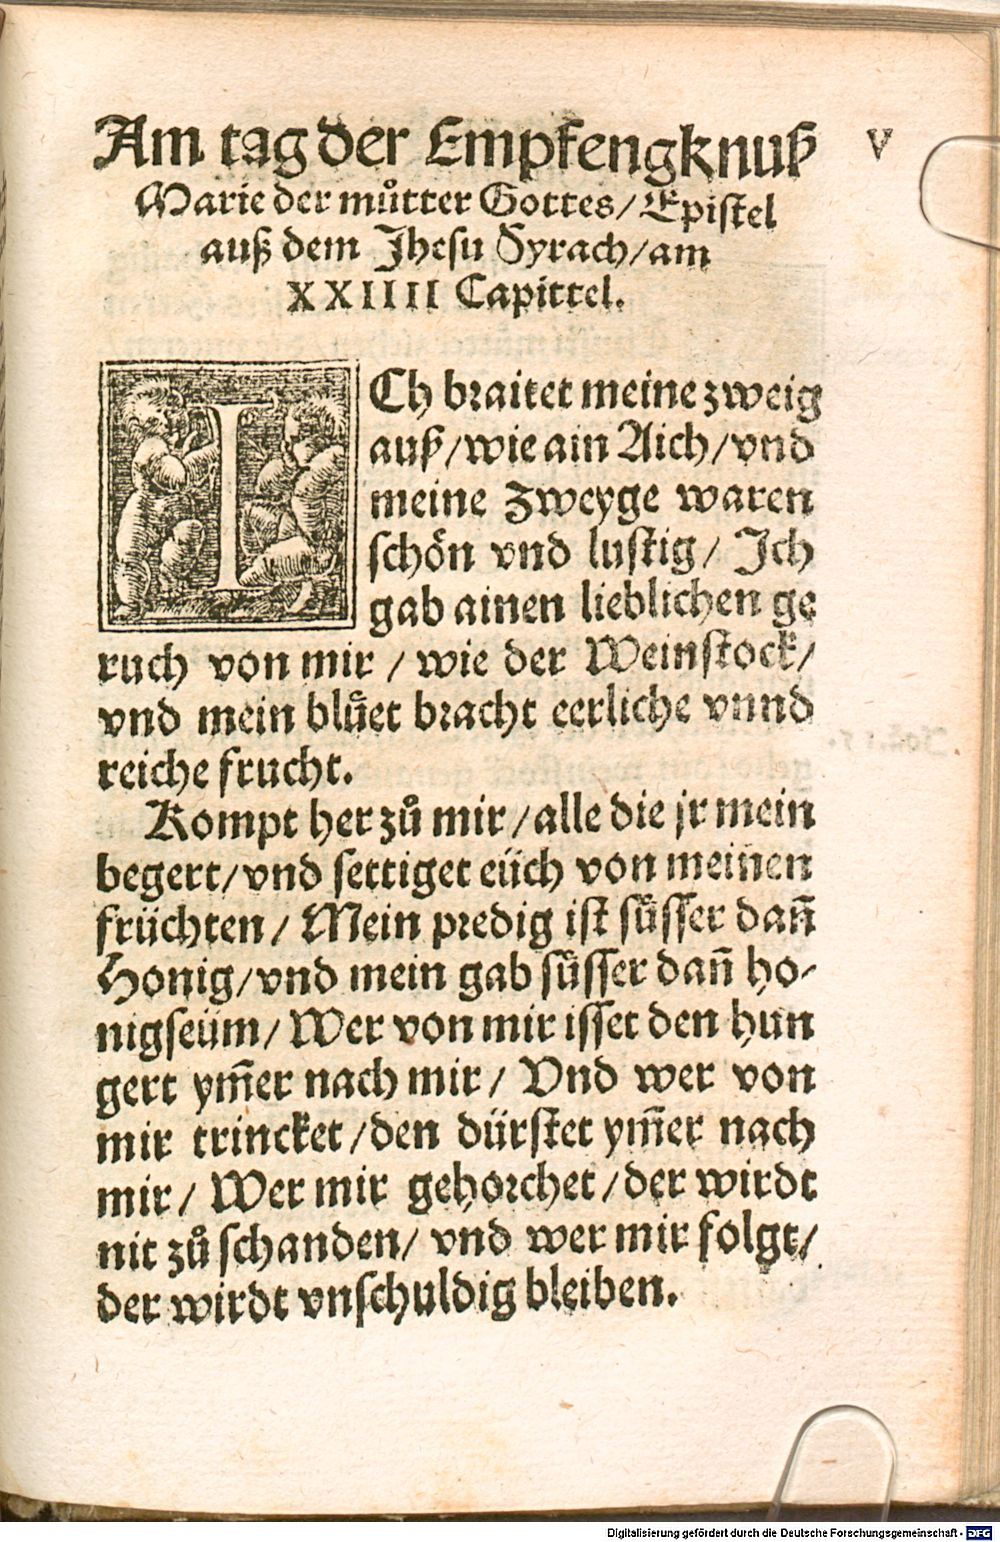 Am tag der Empfengknuß V
Marie der můtter Gottes/ Epistel
auß dem Jhesu Syrach/am
XXIIII Capittel.
ICh braitet meine zweig
auß/wie ain Aich/vnd
meine Zweyge waren
schön vnd lustig/ Jch
gab ainen lieblichen ge
ruch von mir / wie der Weinstock/
vnd mein blüet bracht eerliche vnnd
reiche frucht.
Kompt her zů mir/alle die jr mein
begert/vnd settiget eüch von meinen
früchten/ Mein predig ist süsser dañ
Honig/vnd mein gab süsser dañ ho-
nigseüm/ Wer von mir isset den hun
gert ym̃er nach mir/ Vnd wer von
mir trincket/den dürstet ym̃er nach
mir/ Wer mir gehorchet/der wirdt
nit zů schanden/ vnd wer mir folgt/
der wirdt vnschuldig bleiben.
Digitalisierung gefördert durch die Deutsche Forschungsgemeinschaft - DFG